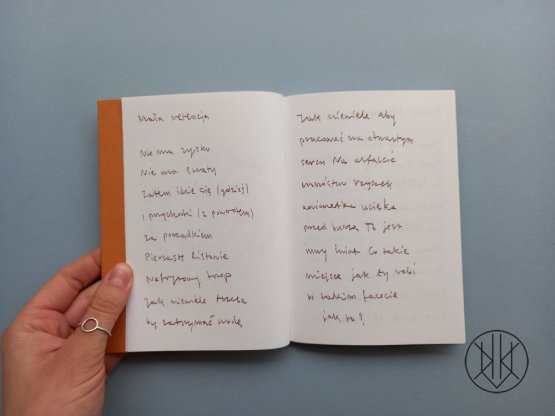 Mała retencja
Nie ma zysku
Nie ma straty
Zatem idzie się (gdzieś)
i przychodzi (z powrotem)
za porządkiem
Pierzast listowie
Natrysowy trop
Jak niewiele trzeba
by zatrzymać wodę
Jak niewiele aby
pracować na otwartym
sercu Na asfalcie
mnóstwo rzęsek
awionetka ucieka
przed burzą To jest
inny świat Co takie
miejsce jak ty robi
w takim facecie
jak to?